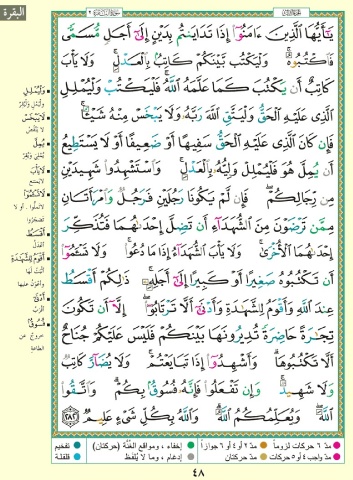 البقرة
يَـٰٓأَيُّهَا ٱلَّذِينَ ءَامَنُوٓا۟ إِذَا تَدَايَنتُم بِدَيْنٍ إِلَىٰٓ أَجَلٍ مُّسَمًّى
فَٱكْتُبُوهُ ۚ وَلْيَكْتُب بَّيْنَكُمْ كَاتِبٌۢ بِٱلْعَدْلِ ۚ وَلَا يَأْبَ
كَاتِبٌ أَن يَكْتُبَ كَمَا عَلَّمَهُ ٱللَّهُ ۚ فَلْيَكْتُبْ وَلْيُمْلِلِ
ٱلَّذِى عَلَيْهِ ٱلْحَقُّ وَلْيَتَّقِ ٱللَّهَ رَبَّهُۥ وَلَا يَبْخَسْ مِنْهُ شَيْـًٔا ۚ
فَإِن كَانَ ٱلَّذِى عَلَيْهِ ٱلْحَقُّ سَفِيهًا أَوْ ضَعِيفًا أَوْ لَا يَسْتَطِيعُ
أَن يُمِلَّ هُوَ فَلْيُمْلِلْ وَلِيُّهُۥ بِٱلْعَدْلِ ۚ وَٱسْتَشْهِدُوا۟ شَهِيدَيْنِ
مِن رِّجَالِكُمْ ۖ فَإِن لَّمْ يَكُونَا رَجُلَيْنِ فَرَجُلٌ وَٱمْرَأَتَانِ
مِمَّن تَرْضَوْنَ مِنَ ٱلشُّهَدَآءِ أَن تَضِلَّ إِحْدَىٰهُمَا فَتُذَكِّرَ
إِحْدَىٰهُمَا ٱلْأُخْرَىٰ ۚ وَلَا يَأْبَ ٱلشُّهَدَآءُ إِذَا مَا دُعُوا۟ ۚ وَلَا تَسْـَٔمُوٓا۟
أَن تَكْتُبُوهُ صَغِيرًا أَوْ كَبِيرًا إِلَىٰٓ أَجَلِهِۦ ۚ ذَٰلِكُمْ أَقْسَطُ
عِندَ ٱللَّهِ وَأَقْوَمُ لِلشَّهَـٰدَةِ وَأَدْنَىٰٓ أَلَّا تَرْتَابُوٓا۟ ۖ إِلَّآ أَن تَكُونَ
تِجَـٰرَةً حَاضِرَةً تُدِيرُونَهَا بَيْنَكُمْ فَلَيْسَ عَلَيْكُمْ جُنَاحٌ
أَلَّا تَكْتُبُوهَا ۗ وَأَشْهِدُوٓا۟ إِذَا تَبَايَعْتُمْ ۚ وَلَا يُضَآرَّ كَاتِبٌ
وَلَا شَهِيدٌ ۚ وَإِن تَفْعَلُوا۟ فَإِنَّهُۥ فُسُوقٌۢ بِكُمْ ۗ وَٱتَّقُوا۟
ٱللَّهَ ۖ وَيُعَلِّمُكُمُ ٱللَّهُ ۗ وَٱللَّهُ بِكُلِّ شَىْءٍ عَلِيمٌ ٢٨٢
وَلْيُمْلِلِ
لَا يَبْخَسْ
يُمِلَّ
لَا يَأْبَ
أَقْسَطُ
أَقْوَمُ لِلشَّهَـٰدَةِ
أَدْنَىٰ
فُسُوقٌ
خروج عن
الطاعة
مدّ ٦ حركات لزوماً
مدّ ٢ أو ٤ أو ٦ جوازاً
إخفاء، ومواقع الغُنَّة (حركتان)
تفخيم
مدّ واجب ٤ أو ٥ حركات
مدّ حركتان
إدغام، وما لا يُلفَظ
قلقلة
٤٨